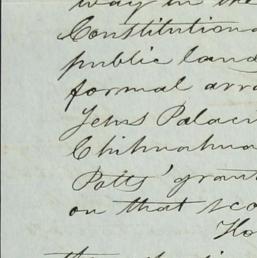 way in the
Constitutiona
public land
formal arra
Jehs Palacu
Chihuahua
Potts' grant
on that sco
Ho